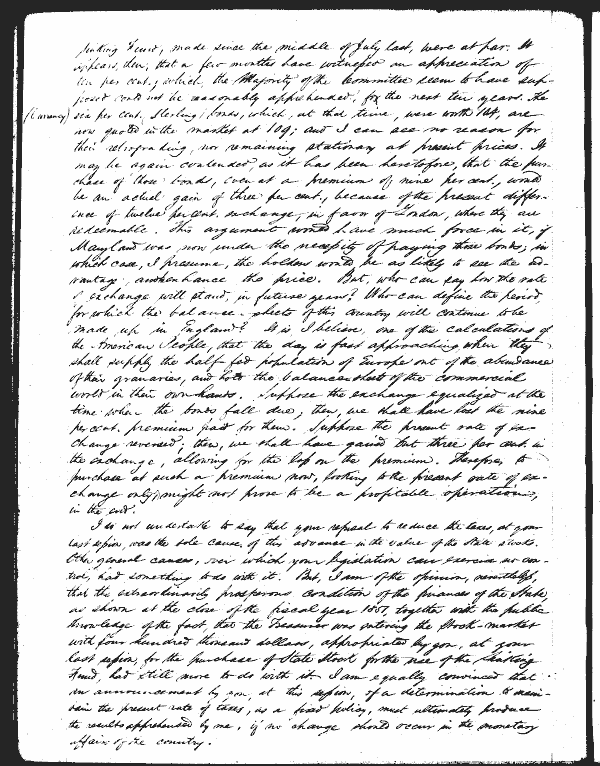 sinking Fund, made since the middle of July last, were at par. It
appears, then, that a few months have witnessed an appreciation of
ten per cent; which, the Majority of the Committee seem to have sup-
posed could not be reasonably apprehended, for the next ten years. The
(Currency) six per cent. Sterling bonds, which, at that time, were worth 104, are
now quoted in the market at 109; and I can see no reason for
their retrograding, nor remaining stationary at present prices. It
may be again contended, as it has been heretofore, that the pur-
chase of those bonds, even at a premium of nine per cent., would
be an actual gain of three per cent., because of the present differ-
ence of twelve per cent. exchange, in favor of London, where they are
redeemable. This argument would have much force in it, if
Maryland was now under the necessity of paying those bonds; in
which case, I presume, the holders would be as likely to see the ad-
vantage, and enhance the price. But, who can say how the rate
of exchange will stand, in future years? Who can define the period,
for which the balance-sheets of this country will continue to be
made up in England? It is, I believe, one of the calculations of
the American People, that the day is fast approaching when they
shall supply the half-fed population of Europe out of the abundance
of their granaries, and hold the balance sheet of the commercial
world in their own hands. Suppose the exchange equalized at the
time when the bonds fall due; then, we shall have lost the nine
per cent. premium paid for them. Suppose the present rate of ex-
change reversed; then, we shall have gained but three per cent. in
the exchange, allowing for the loss on the premium. Therefore, to
purchase at such a premium now, looking to the present rate of ex-
change only, might not prove to be a profitable operation,
in the end.
I do not undertake to say that your refusal to reduce the taxes, at your
last session, was the sole cause of this advance in the value of the State stocks.
Other general causes, over which your legislation can exercise no con-
trol, had something to do with it. But, I am of the opinion, nevertheless,
that the extraordinarily prosperous condition of the finances of the State,
as shown at the close of the fiscal year 1851, together with the public
knowledge of the fact, that the Treasurer was entering the Stock-market
with four hundred thousand dollars, appropriated by you, at your
last session, for the purchase of State Stock for the use of the Sinking
Fund, had still more to do with it. I am equally convinced that
an announcement by you, at this session, of a determination to main-
tain the present rate of taxes, as a fixed policy, must ultimately produce
the results apprehended by me, if no change should occur in the monetary
affairs of the country.